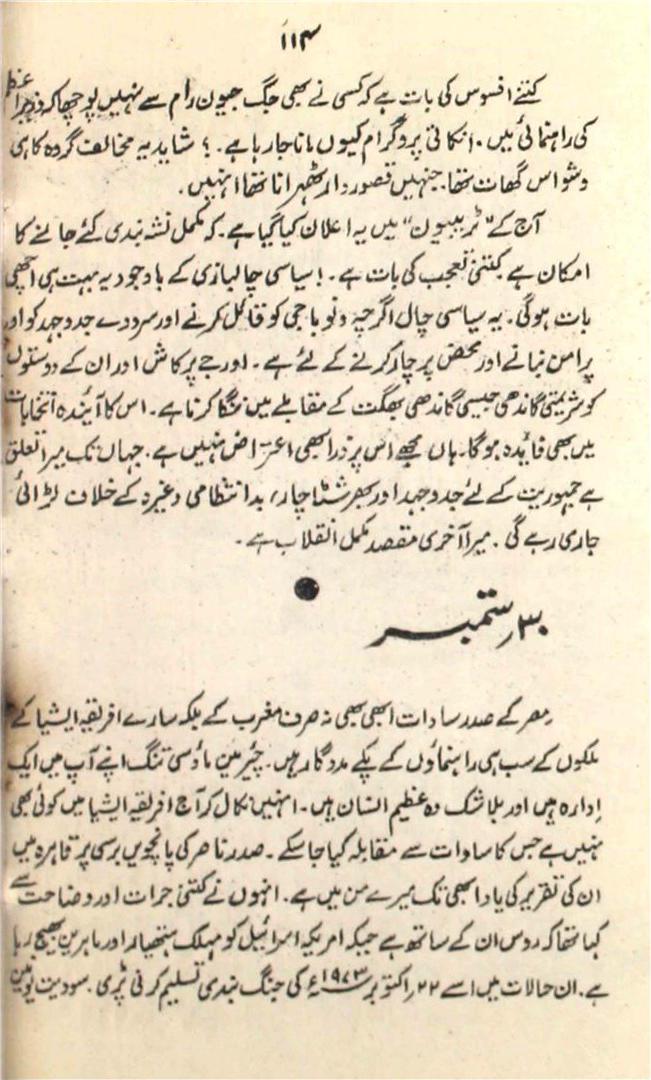 ۱۱۴
کتنے افسوس کی بات ہے کہ کسی نے بھی جگ جیون رام سے نہیں پوچھا کہ وزیراعظم
کی راہنمائی میں ۲۰ نکاتی پروگرام کیوں مانا جا رہا ہے۔ ؟ شاید یہ مخالف گروہ کا ہی
وشواس گھات تھا۔ جنہیں قصوروار ٹھہرانا تھا انہیں۔
آج کے ”ٹریبیون“ میں یہ اعلان کیا گیا ہے۔ کہ مکمل نشہ بندی کئے جانے کا
امکان ہے کتنی تعجب کی بات ہے۔ ! سیاسی چالبازی کے باوجود یہ بہت ہی اچھی
بات ہوگی۔ یہ سیاسی چال اگرچہ ونوباجی کو قائل کرنے اور سرودے جدوجہد کو اور
پرامن بنانے اور محض پرچار کرنے کے لئے ہے۔ اور جے پرکاش اور ان کے دوستوں
کو شریمتی گاندھی جیسی گاندھی بھگت کے مقابلے میں ننگا کرنا ہے۔ اس کا آیندہ انتخابات
میں بھی فائدہ ہوگا۔ ہاں مجھے اس پر ذرا بھی اعتراض نہیں ہے۔ جہاں تک میرا تعلق
ہے جمہوریت کے لئے جدوجہد اور بھرشٹاچار، بدانتظامی وغیرہ کے خلاف لڑائی
جاری رہے گی۔ میرا آخری مقصد مکمل انقلاب ہے۔
۳۰ ستمبر
مصر کے صدر سادات ابھی بھی نہ صرف مغرب کے بلکہ سارے افریقہ ایشیا کے
ملکوں کے سب ہی راہنماؤں کے پکے مددگار ہیں۔ چئرمین ماؤسی تنگ اپنے آپ میں ایک
ادارہ ہیں اور بلاشک وہ عظیم انسان ہیں۔ انہیں نکال کر آج افریقہ ایشیا میں کوئی بھی
نہیں ہے جس کا سادات سے مقابلہ کیا جا سکے۔ صدر ناصر کی پانچویں برسی پر قاہرہ میں
ان کی تقریر کی یاد ابھی تک میرے من میں ہے۔ انہوں نے کتنی جرات اور وضاحت سے
کہا تھا کہ روس ان کے ساتھ ہے جبکہ امریکہ اسرائیل کو مہلک ہتھیار اور ماہرین بھیج رہا
ہے۔ ان حالات میں اسے ۲۲ اکتوبر ۱۹۷۳ء کی جنگ بندی تسلیم کرنی پڑی۔ سوویت یونین